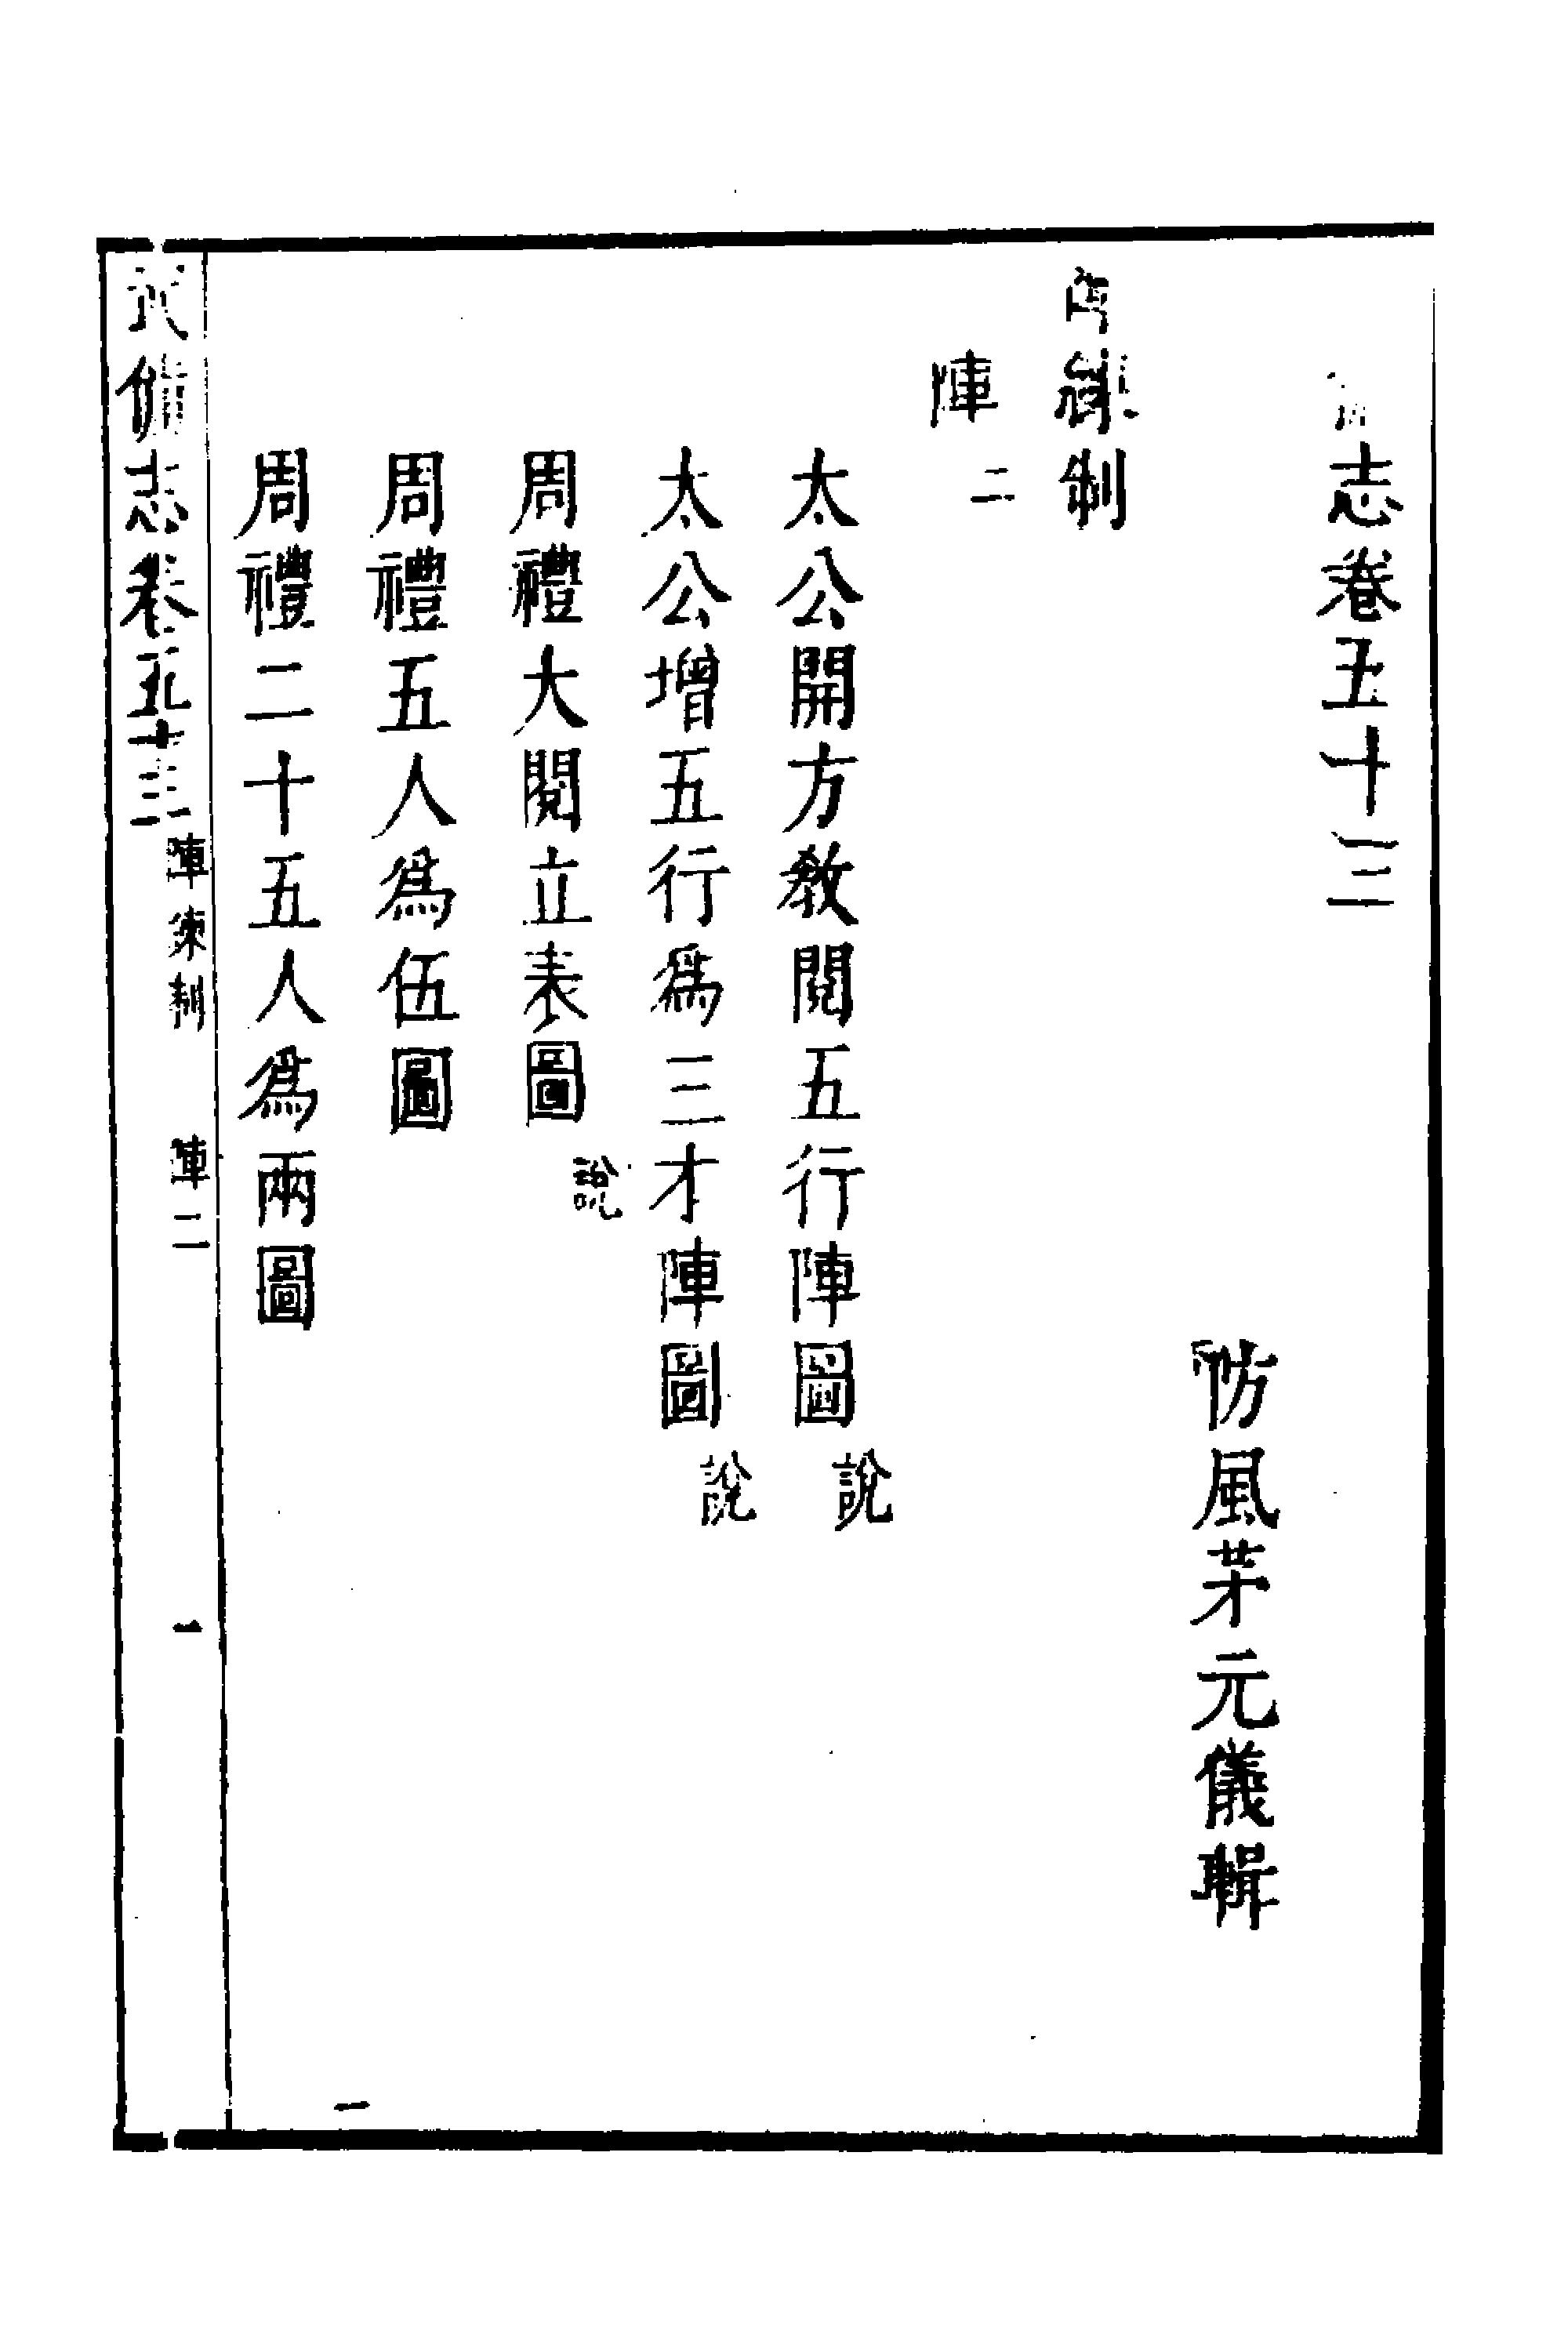 志卷五十三
防風茅元儀輯
練制
陣二
太公開方教閱五行陣圖說
太公增五行為三才陣圖說
周禮大閱立表圖說
周禮五人為伍圖
周禮二十五人為兩圖
武備志卷五十三 陣練制 陣二 一